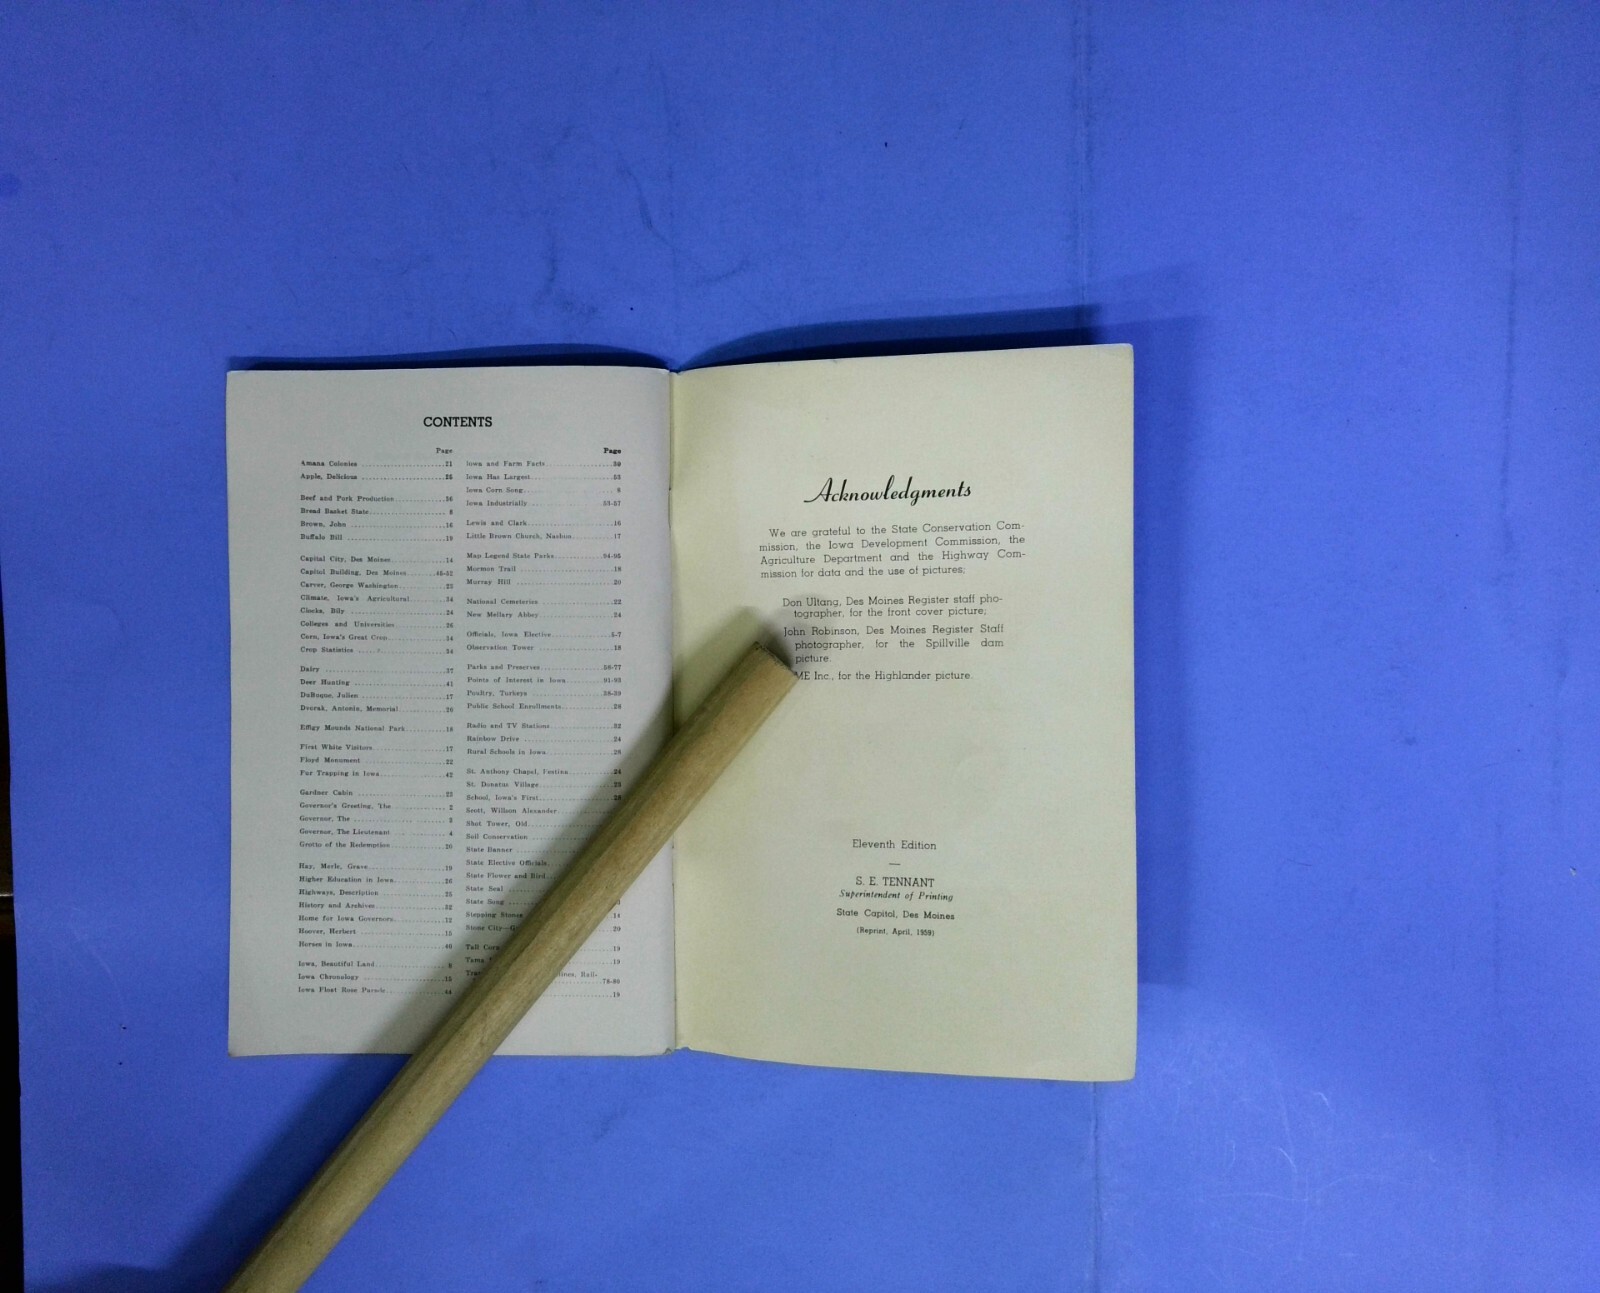 CONTENTS
Page
Amana Colonies 21
Apple, Delicious
Beef and Pork Production 36
Bread Basket State 8
Brown, John 16
Buffalo Bill 19
Capital City, Des Moines 14
Capitol Building, Des Moines
Carver, George Washington
Climate, Iowa's Agricultural 34
Clocks, Bily 24
Colleges and Universities 26
Corn, Iowa's Great Crop 34
Crop Statistics 34
Dairy 37
Deer Hunting 41
DuBuque, Julien 17
Dvorak, Antonin, Memorial
Effigy Mounds National Park
First White Visitors 17
Floyd Monument 22
Fur Trapping in Iowa 42
Gardner Cabin 23
Governor's Greeting, The 2
Governor, The
Governor, The Lieutenant 4
Grotto of the Redemption 20
Hay, Merle, Grave 19
Higher Education in Iowa 26
Highways, Description
History and Archives
Home for Iowa Governors 12
Hoover, Herbert 15
Horses in Iowa 40
Iowa, Beautiful Land
Iowa Chronology
Iowa Float Rose Parade
Page
Iowa and Farm Facts
Iowa Has Largest
Iowa Corn Song
Iowa Industrially 53-57
Lewis and Clark 16
Little Brown Church, Nashua 17
Map Legend State Parks 94-95
Mormon Trail 18
Murray Hill 20
National Cemeteries 22
New Mellary Abbey 24
Officials, Iowa Elective 5-7
Observation Tower 18
Parks and Preserves
Points of Interest in Iowa 91-93
Poultry, Turkeys 38-39
Public School Enrollments 28
Radio and TV Stations
Rainbow Drive 24
Rural Schools in Iowa
St. Anthony Chapel, Festina 24
St. Donatus Village
School, Iowa's First
Scott, Willson Alexander
Shot Tower, Old
Soil Conservation
State Banner
State Elective Officials
State Flower and Bird
State Seal
State Song
Stepping Stones 14
Stone City 20
Tall Corn 19
19
Rail-
78-80
18
Acknowledgments
We are grateful to the State Conservation Com-
mission, the Iowa Development Commission, the
Agriculture Department and the Highway Com-
mission for data and the use of pictures;
Don Ultang, Des Moines Register staff pho-
tographer, for the front cover picture;
John Robinson, Des Moines Register Staff
photographer, for the Spillville dam
picture.
ME Inc., for the Highlander picture.
Eleventh Edition
S. E. TENNANT
Superintendent of Printing
State Capitol, Des Moines
(Reprint, April, 1959)